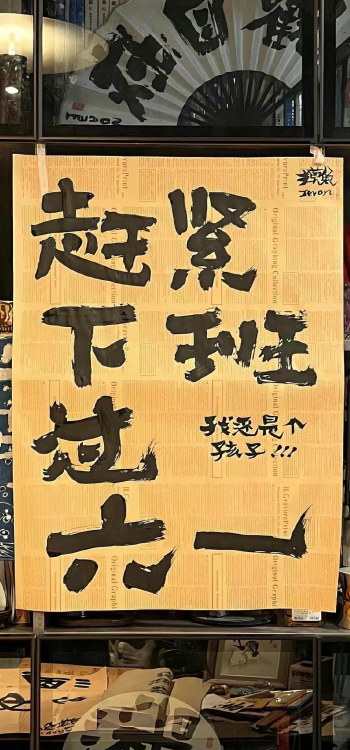 赶紧
下班
过
我还是个
孩子!!!
六一
Jevon
Original Graphing Collection